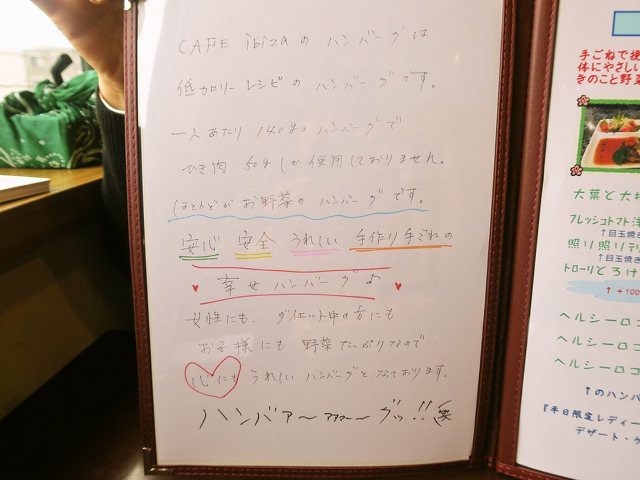 CAFE ibizaの ハンバーグは
低カロリーレシピの ハンバーグです。
一人あたり 140gのハンバーグで
ひき肉 50gしか使用しておりません。
ほとんどが お野菜の ハンバーグです。
安心 安全 うれしい 手作り手ごねの
幸せハンバーグ♪
女性にも、ダイエット中の方にも
お子様にも 野菜たっぷりなので
心にも うれしい ハンバーグとなっております。
ハンバァ〜 〜グッ!!
手ごねで
体にやさしい
きのこと野菜
大葉と大
フレッシュトマト
↑目玉焼き
照り照りテリ
↑目玉焼き
トローリとろけ
↑ +100
ヘルシーロコ
ヘルシーロコ
ヘルシーロコ
↑のハンバ
『平日限定レディー
デザート・